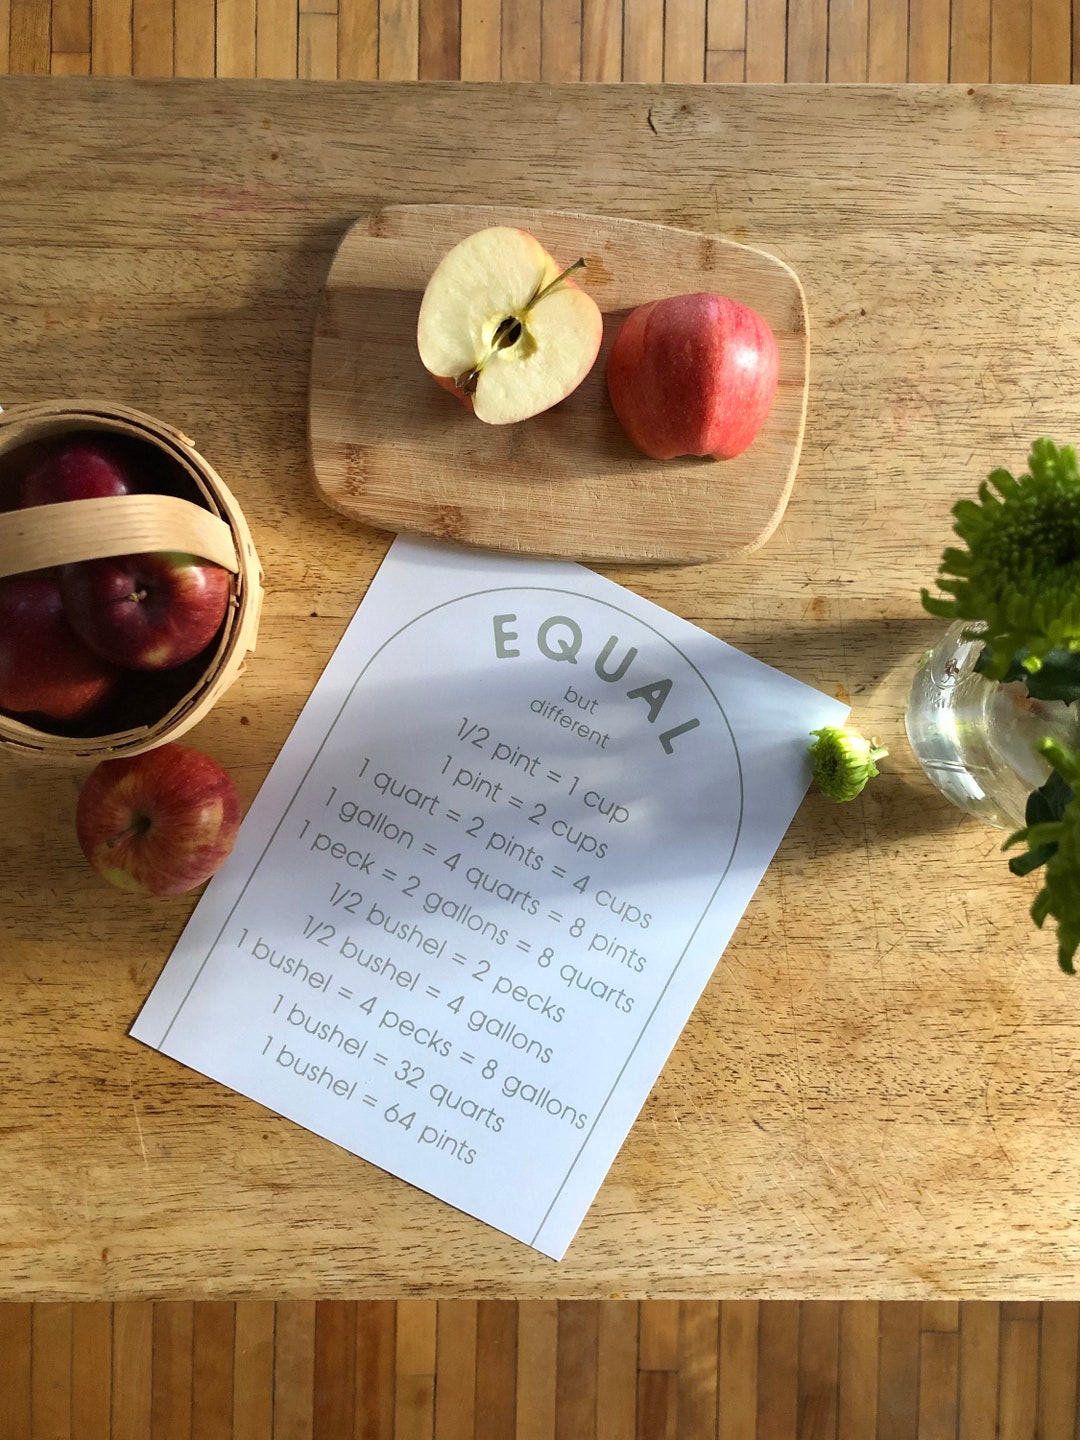 EQUAL
but
different
1/2 pint = 1 cup
1 pint = 2 cups
1 quart = 2 pints = 4 cups
1 gallon = 4 quarts = 8 pints
1 peck = 2 gallons = 8 quarts
1/2 bushel = 2 pecks
1/2 bushel = 4 gallons
1 bushel = 4 pecks = 8 gallons
1 bushel = 32 quarts
1 bushel = 64 pints